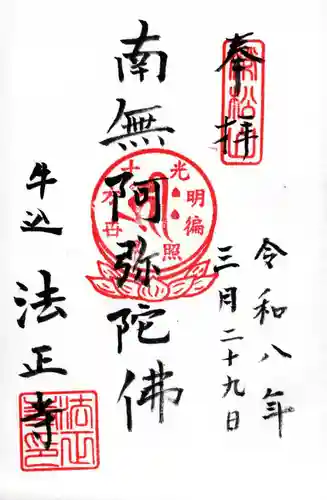 奉拝
令和八年
三月二十九日
南無阿弥陀佛
光明徧照十方世
牛込
法正寺
法正寺